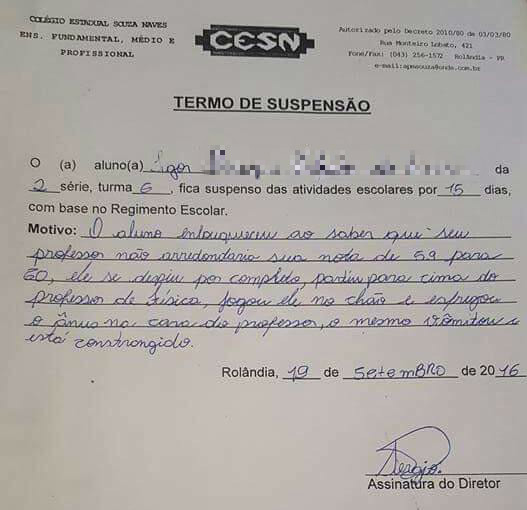 COLÉGIO ESTADUAL SOUZA NAVES
ENS. FUNDAMENTAL, MÉDIO E
PROFISSIONAL
CESN
Autorizado pelo Decreto 2010/80 de 03/03/80
Rua Monteiro Lobato, 421
Fone/Fax: (043) 256-1572 Rolândia - PR
e-mail:apmsouza@onda.com.br
TERMO DE SUSPENSÃO
O (a) aluno(a) Igor da
2 série, turma 6, fica suspenso das atividades escolares por 15 dias,
com base no Regimento Escolar.
Motivo: O aluno enlouqueceu ao saber que seu
professor não arredondaria sua nota de 59 para
60, ele se despiu por completo, partiu para cima do
professor de física, jogou ele no chão e esfregou
o ânus na cara do professor, o mesmo vômitou e
está constrangido.
Rolândia, 19 de Setembro de 2016
Sergio.
Assinatura do Diretor